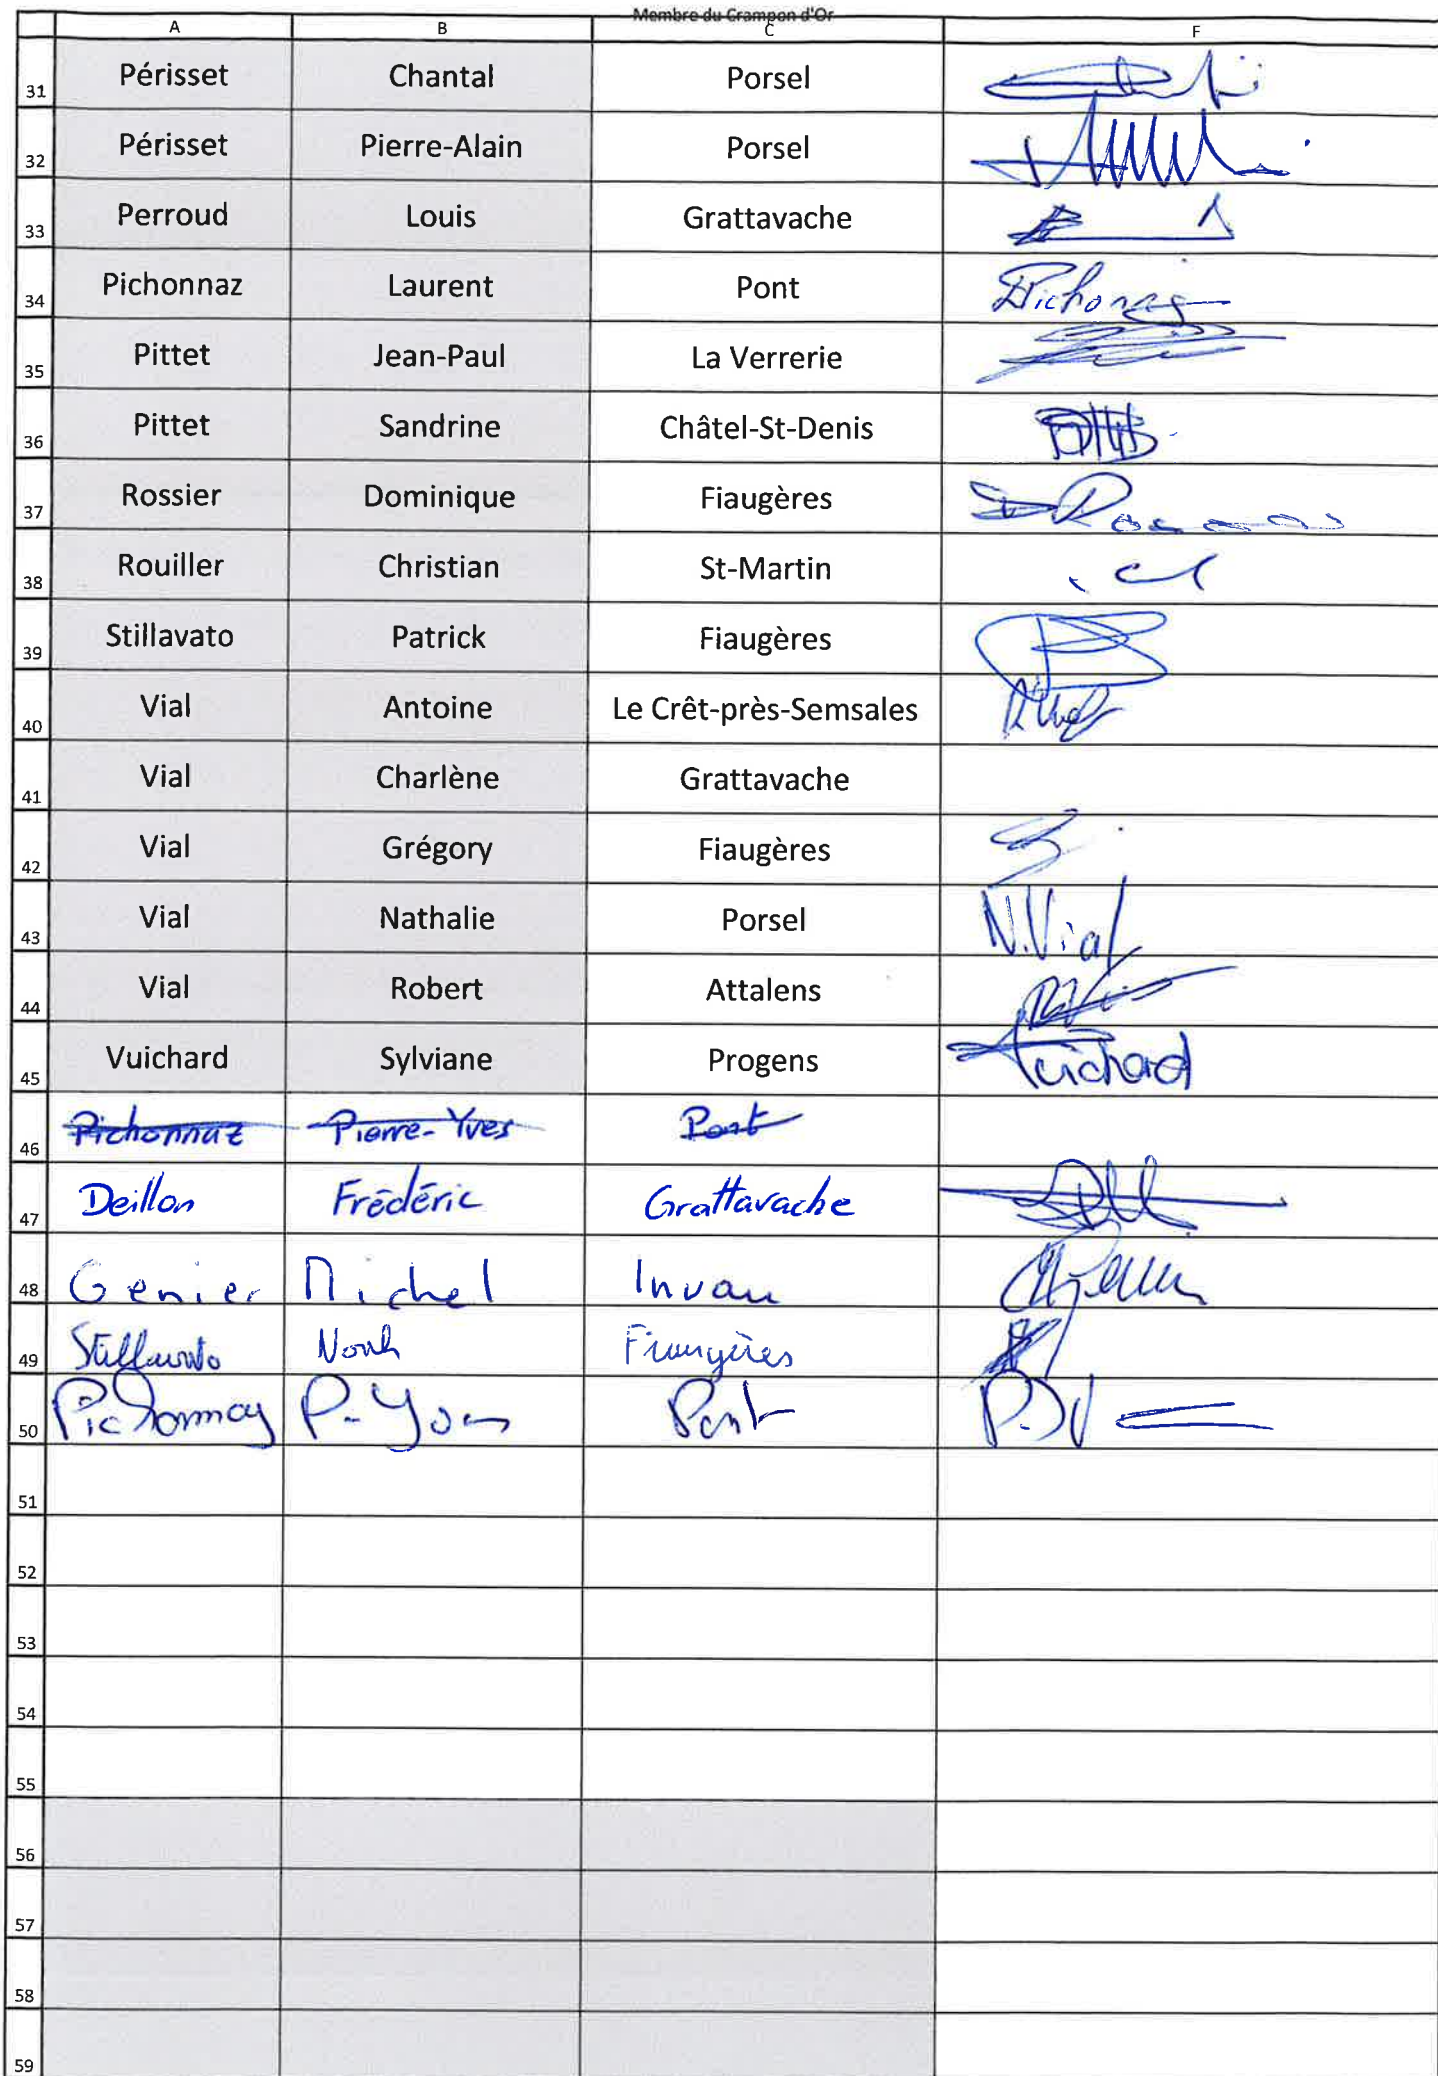 Membre du Crampon d'Or
A B C F
31 Périsset Chantal Porsel
32 Périsset Pierre-Alain Porsel
33 Perroud Louis Grattavache
34 Pichonnaz Laurent Pont Pichonnaz
35 Pittet Jean-Paul La Verrerie
36 Pittet Sandrine Châtel-St-Denis
37 Rossier Dominique Fiaugères
38 Rouiller Christian St-Martin
39 Stillavato Patrick Fiaugères
40 Vial Antoine Le Crêt-près-Semsales
41 Vial Charlène Grattavache
42 Vial Grégory Fiaugères
43 Vial Nathalie Porsel N.Vial
44 Vial Robert Attalens
45 Vuichard Sylviane Progens Vuichard
46 Pichonnaz Pierre-Yves Pont
47 Deillon Frédéric Grattavache
48 Genier Michel
49 Stillavato Fiaugères
50 Pichonnaz P-Yves Pont
51
52
53
54
55
56
57
58
59